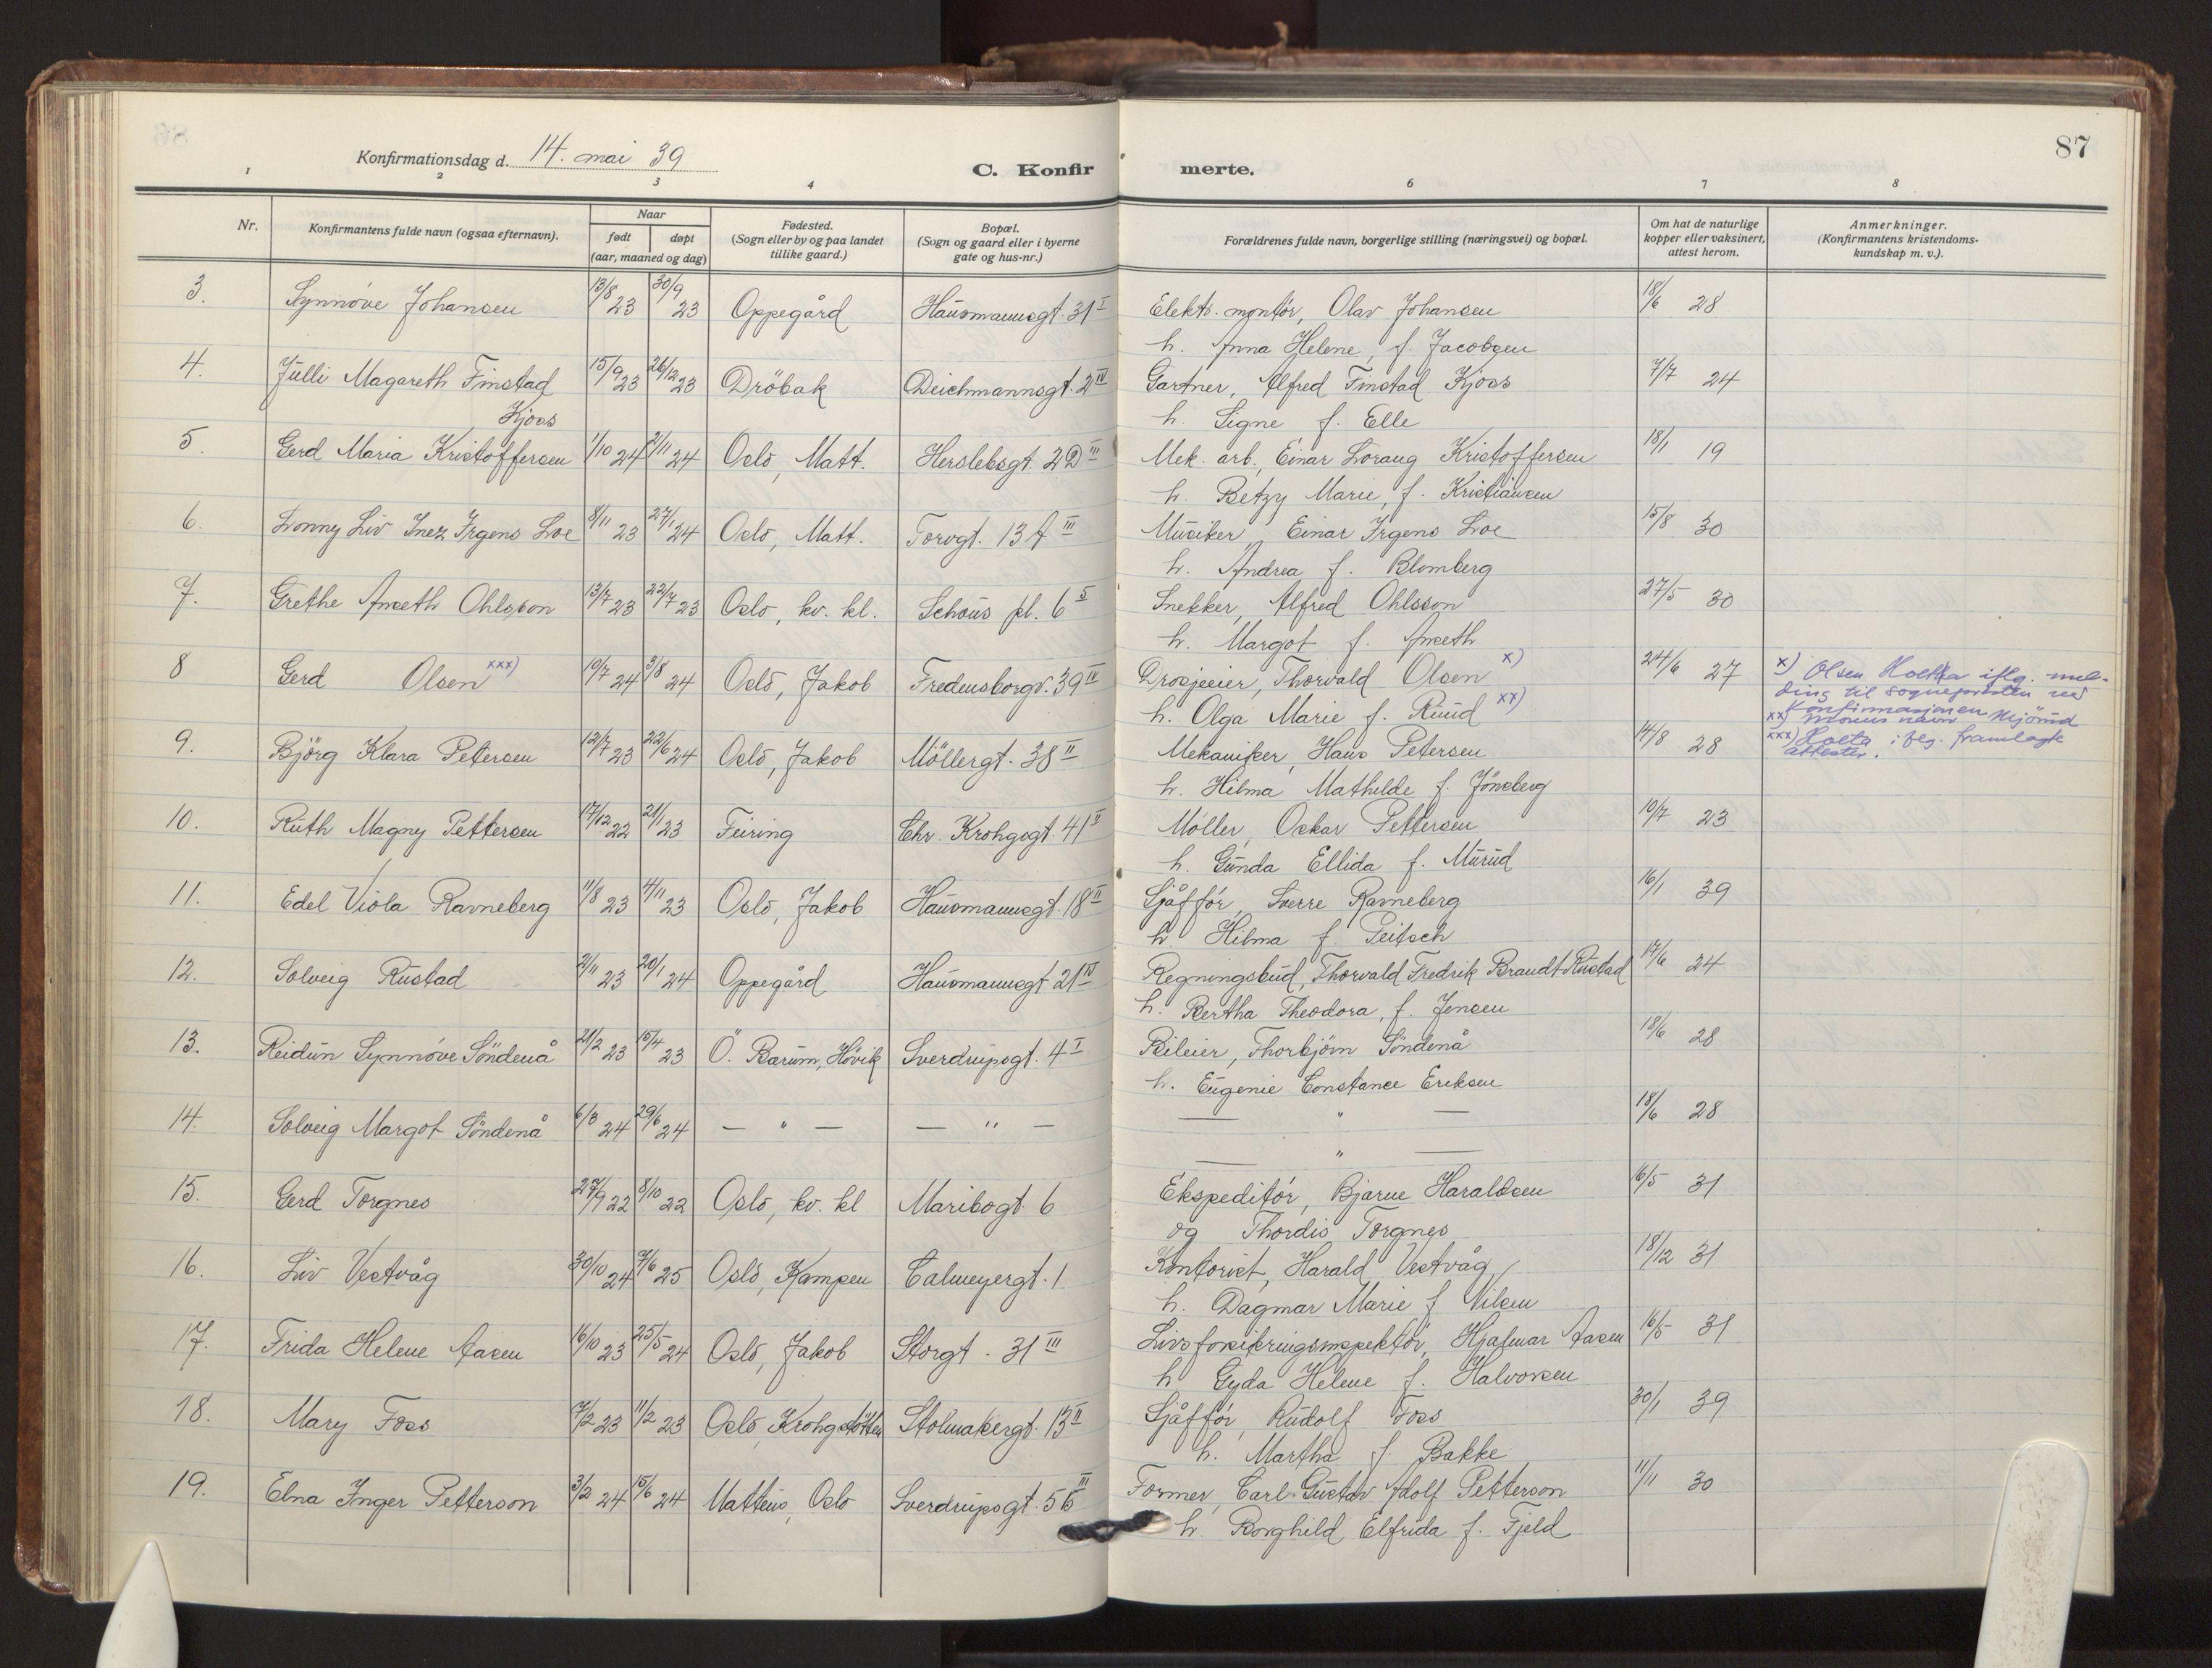 Konfirmationsdag d. 14. mai 39
C. Konfirmerte.
87
1 2 3 4 5 6 7 8
Nr. Konfirmantens fulde navn (ogsaa efternavn). Naar født døpt (aar, maaned og dag) Fødested. (Sogn eller by og paa landet tillike gaard.) Bopæl. (Sogn og gaard eller i byerne gate og hus-nr.) Forældrenes fulde navn, borgerlige stilling (næringsvei) og bopæl. Om hat de naturlige kopper eller vaksinert, attest herom. Anmerkninger. (Konfirmantens kristendomskundskap m. v.).
3. Synnóve Johansen 13/8 23 30/9 23 Oppegård Hausmannsgt. 31 I Elektr. montör, Olav Johansen 18/6 28
h. Anna Helene, f. Jacobsen
4. Julli Magareth Finstad 15/9 23 26/12 23 Dröbak Deichmannsgt. 2 IV Gartner, Alfred Finstad Kjoss 7/7 24
Kjoss h. Signe f. Elle
5. Gerd Maria Kristoffersen 1/10 24 2/11 24 Oslo, Matt. Herslebsgt. 2D III Mek. arb., Einar Lorang Kristoffersen 18/1 19
h. Betzy Marie, f. Kristiansen
6. Lonny Liv Inez Irgens Loe 8/11 23 27/1 24 Oslo, Matt. Torvgt. 13 A III Musiker, Einar Irgens Loe 15/8 30
h. Andrea f. Blomberg
7. Grethe Anseth Ohlsson 13/7 23 22/7 23 Oslo, kv. kl. Schous pl. 6 5 Snekker, Alfred Ohlsson 27/5 30
h. Margot f. Anseth
8 Gerd Olsen xxx) 10/7 24 3/8 24 Oslo, Jakob Fredensborgv. 39 IV Drosjeeier, Thorvald Olsen x) 24/6 27 x) Olsen Holta iflg. mel-
ding til sognepresten ved
h. Olga Marie f. Ruud xx) Konfirmasjonen
xx) Morens navn Mjörud
xxx) Holta iflg. framlagte
attester.
9. Björg Klara Petersen 12/7 23 22/6 24 Oslo, Jakob Möllergt. 38 II Mekaniker, Hans Petersen 14/8 28
h. Hilma Mathilde f. Jönsberg
10. Ruth Magny Pettersen 17/12 22 21/1 23 Feiring Chr. Krohgsgt. 41 II Möller, Oskar Pettersen 10/7 23
h. Gunda Ellida f. Murud
11. Edel Viola Ravneberg 11/8 23 4/11 23 Oslo, Jakob Hausmannsgt. 18 II Sjåffór, Sverre Ravneberg 16/1 39
h. Hilma f. Peitsch
12. Solveig Rustad 2/11 23 20/1 24 Oppegård Hausmannsgt 21 IV Regningsbud, Thorvald Fredrik Brandt Rustad 17/6 24
h. Bertha Theodora, f. Jensen
13. Reidun Synnóve Söndenå 21/2 23 15/4 23 Ö. Bærum, Hövik Sverdrupsgt. 4 I Bileier, Thorbjörn Söndenå 18/6 28
h. Eugenie Constance Eriksen
14. Solveig Margot Söndenå 6/3 24 29/6 24 — " — — " — — " — 18/6 28
— " —
15. Gerd Torgnes 27/9 22 8/10 22 Oslo, kv. kl Maribogt. 6 Ekspeditór, Bjarne Haraldsen 16/5 31
og Thordis Torgnes
16. Liv Vestvåg 30/10 24 7/6 25 Oslo, Kampen Calmeyergt. 1 Kontorist, Harald Vestvåg 18/12 31
h. Dagmar Marie f. Nilsen
17. Frida Helene Aasen 16/10 23 25/5 24 Oslo, Jakob Storgt. 31 III Livsforsikringsinspektör, Hjalmar Aasen 16/5 31
h Gyda Helene f. Halvorsen
18. Mary Foss 7/2 23 11/2 23 Oslo, Krohgstötten Stolmakergt. 13 II Sjåffór, Rudolf Foss 30/1 39
h. Martha f. Bakke
19. Elna Inger Petterson 3/2 24 15/6 24 Matteus, Oslo Sverdrupsgt. 5 B III Former, Carl Gustav Adolf Petterson 11/11 30
h. Borghild Elfrida f. Fjeld